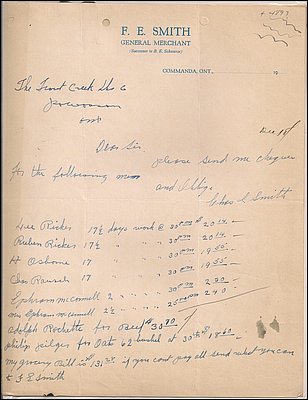 F. E. SMITH
GENERAL MERCHANT
(Successor to B. E. Schwarz)
COMMANDA, ONT.,
The Trout Creek
Ont
Dec 18
Dear Sir.
please send me cheques
for the following men
and Oblige
Chas Smith
Ricker 17½ days work @ 30 00 $ 20 14
Reuben Ricker 17½ " " " 30 00 20 14
H Osborne 17 " " " 30 00 19 55
Chas 17 " " " 30 00 19 55
Ephraim McConnell 2 " " " 30 00 2 30
Mrs Ephram McConnell 2½ " " " 25 00 2 40
Adolph Rochette for Beef $ 30
philip Hilges for Oats 62 bushel at 30 18 60
my grocery Bill is $ 13 if you cant pay all send what you can
to F E Smith